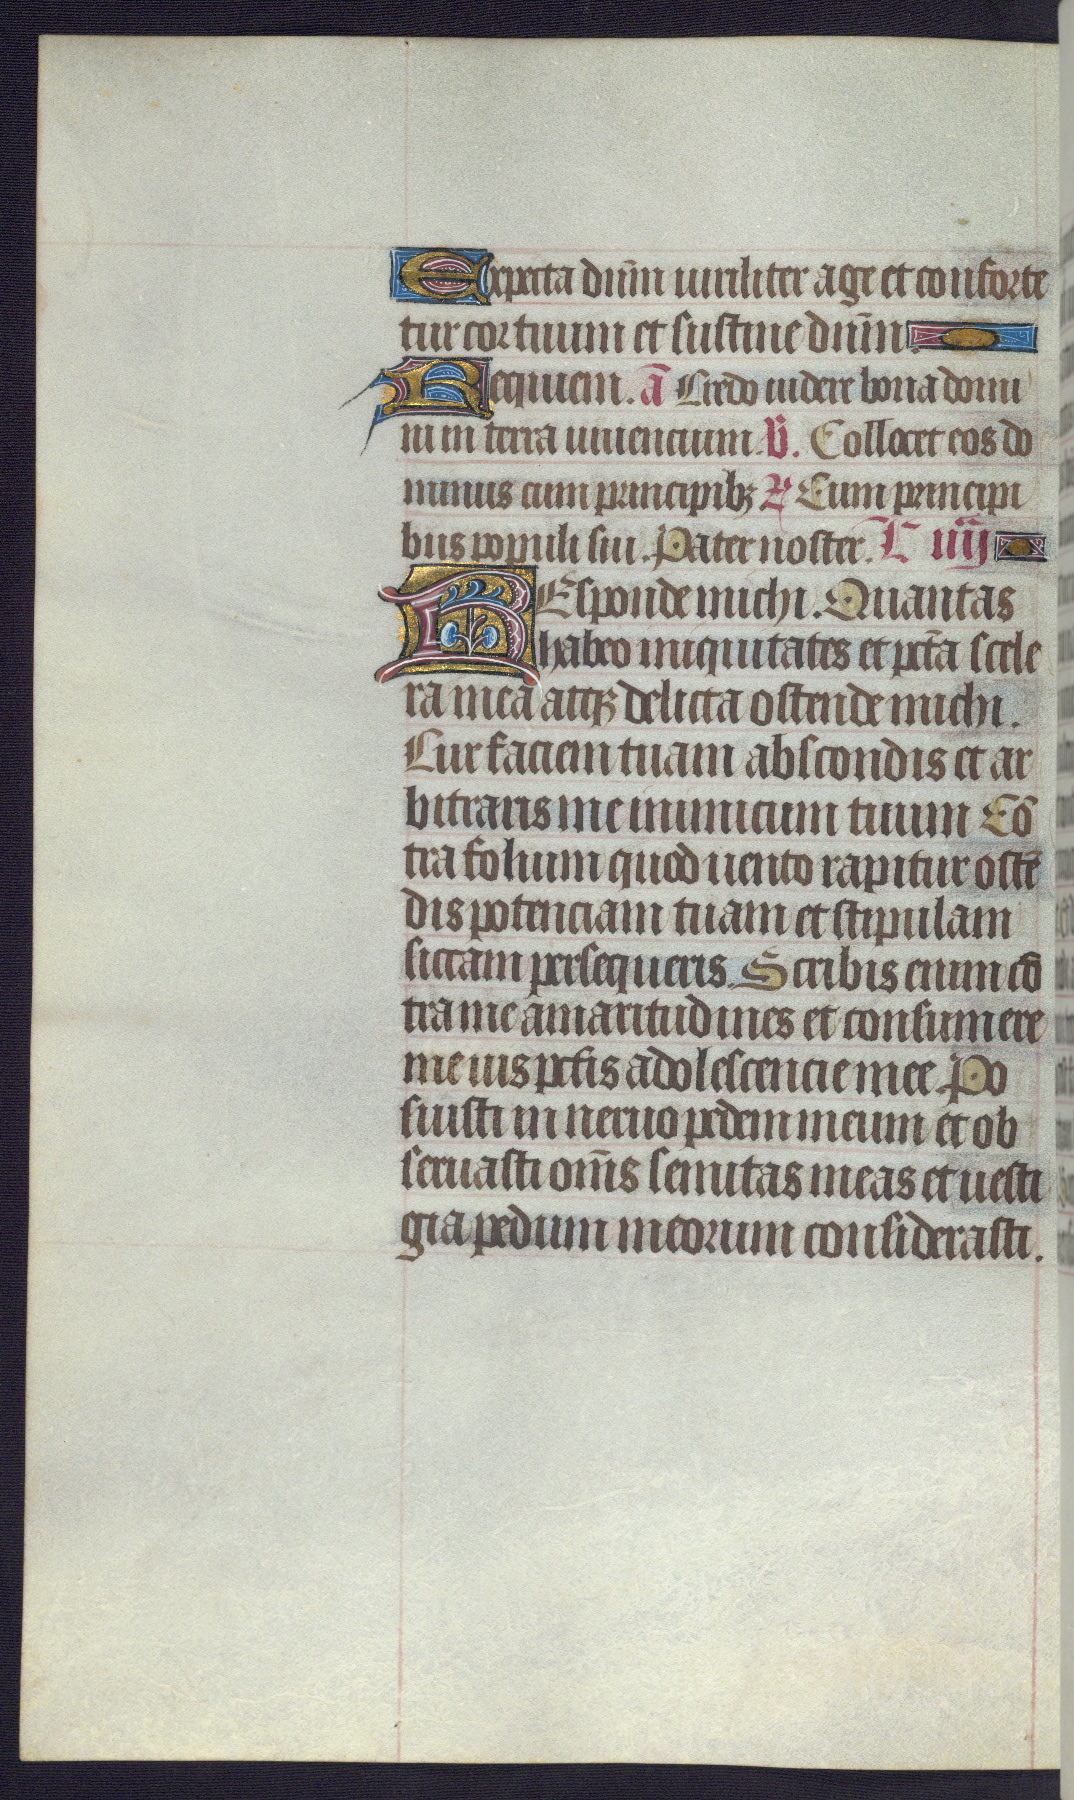 Expecta dnm̄ uiriliter age et conforte
tur cor tuum et sustine dnm̄.
Requiem. ā Credo uidere bona domi
ni in terra uiuencium. V̄. Collocet eos do
minus cum principibꝫ ℟ Cum principi
bus populi sui. Pater noster. L iiij
REsponde michi. Quantas
habeo iniquitates et pctā scele
ra mea atqꝫ delicta ostende michi.
Cur faciem tuam abscondis et ar
bitraris me inimicum tuum Cō
tra folium quod uento rapitur ostē
dis potenciam tuam et stipulam
siccam persequeris. Scribis enim cō
tra me amaritudines et consumere
me uis pctis adolescencie mee. Po
suisti in neruo pedem meum et ob
seruasti om̄s semitas meas et uesti
gia pedum meorum considerasti.